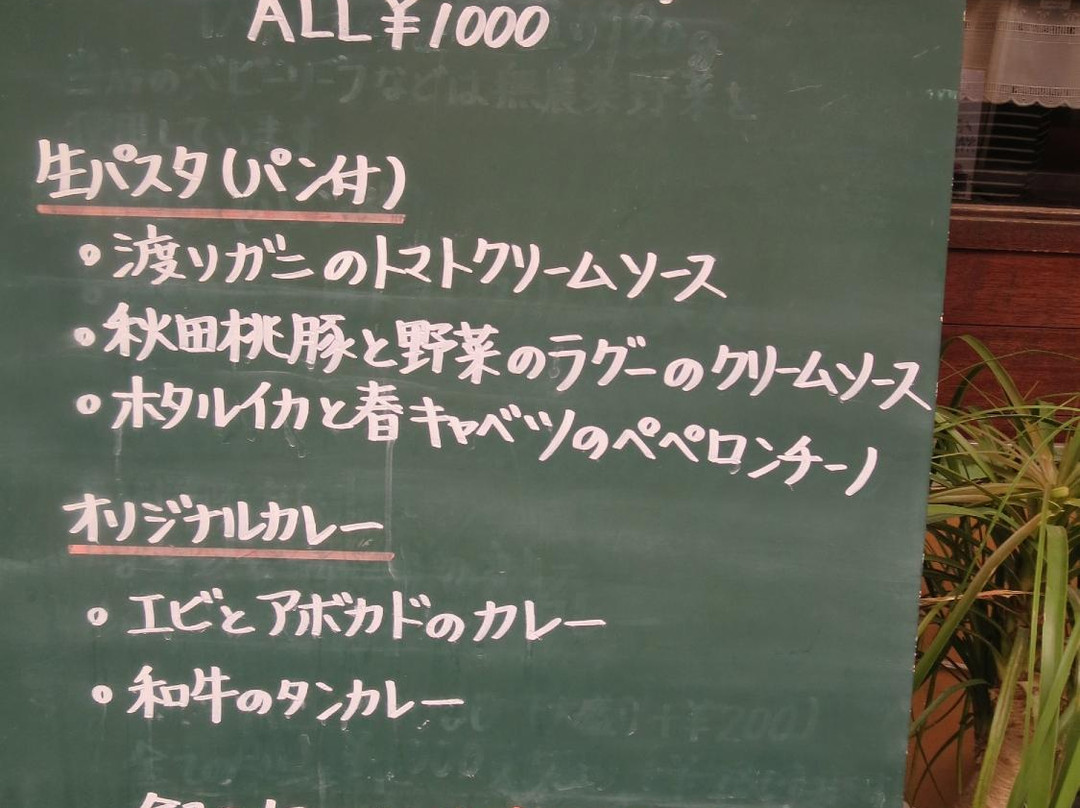 ALL ¥1000
生パスタ(パン付)
• 渡りガニのトマトクリームソース
• 秋田桃豚と野菜のラグーのクリームソース
• ホタルイカと春キャベツのペペロンチーノ
オリジナルカレー
• エビとアボカドのカレー
• 和牛のタンカレー